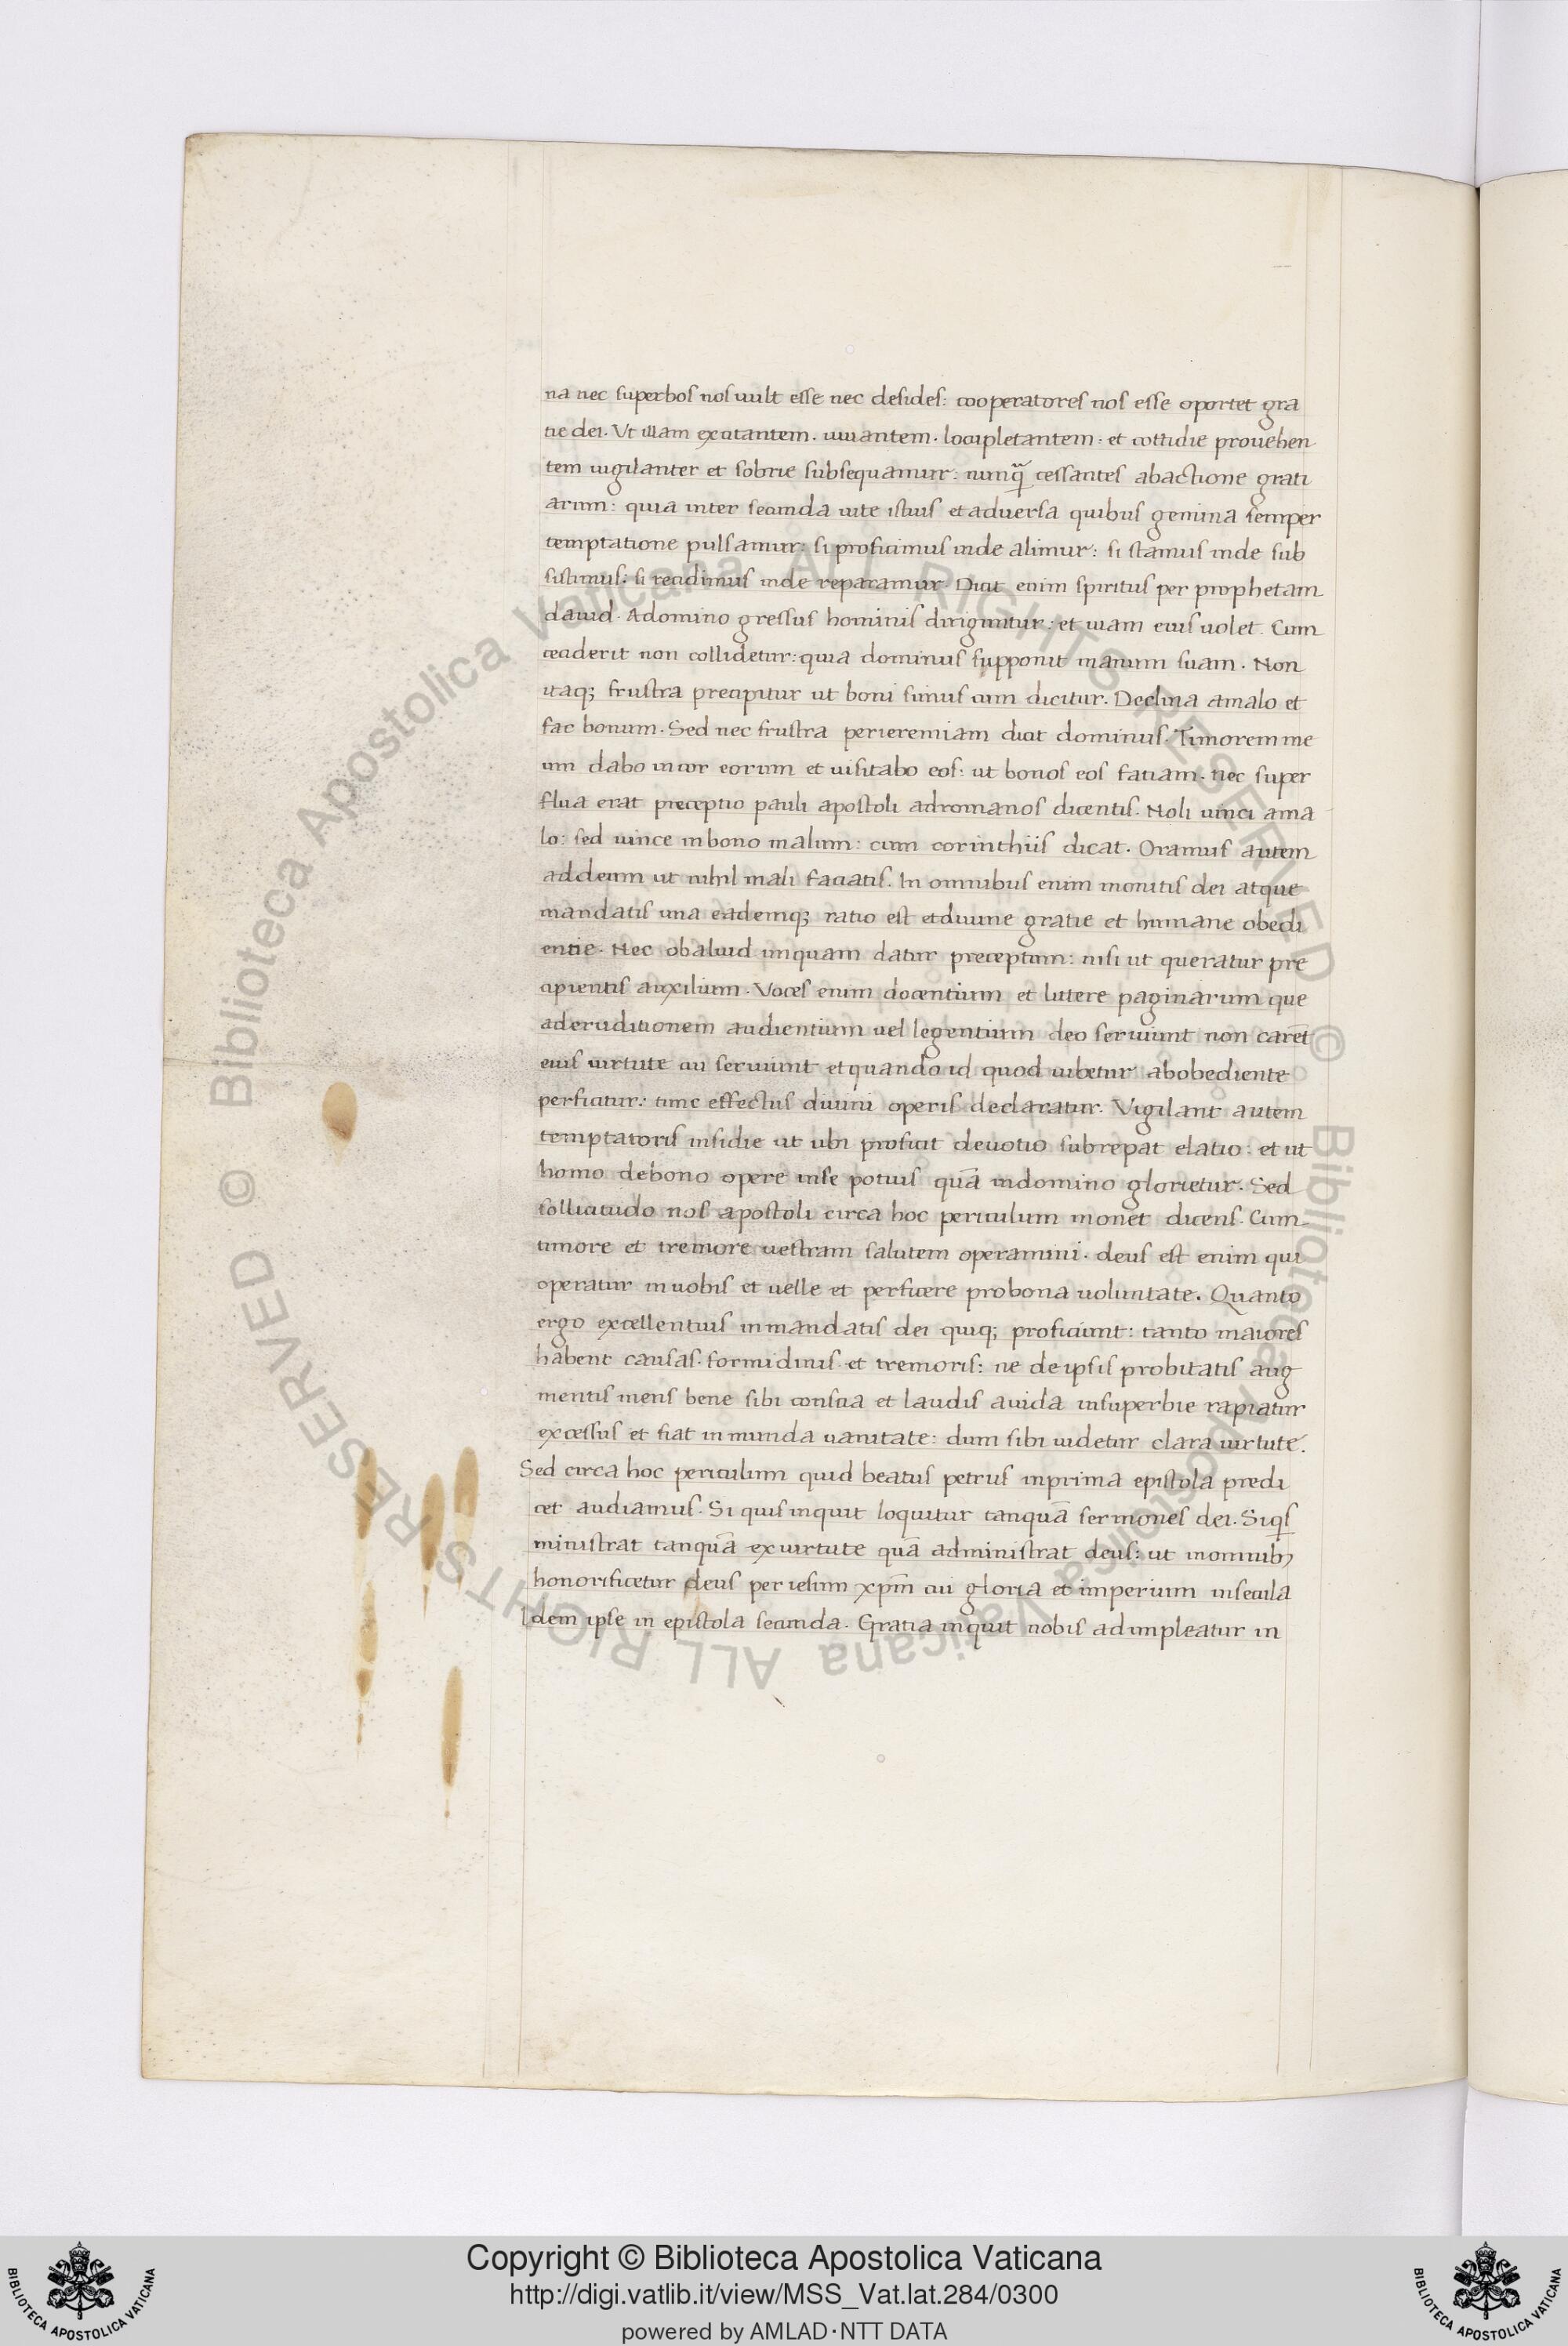 na nec superbos nos uult esse nec desides: cooperatores nos esse oportet gra
tie dei. Vt illam excitantem. iuuantem. locupletantem: et cottidie prouehen
tem uigilanter et sobrie subsequamur: numq̄ cessantes abactione grati
arum: quia inter secunda uite istius et aduersa quibus gemina semper
temptatione pulsamur: si proficimus inde alimur: si stamus inde sub
sistimus: si recidimus inde reparamur. Dicit enim spiritus per prophetam
dauid. Adomino gressus hominis diriguntur: et uiam eius uolet. Cum
ceciderit non collidetur: quia dominus supponit manum suam. Non
itaq; frustra precipitur ut boni simus cum dicitur. Declina amalo et
fac bonum. Sed nec frustra perieremiam dicit dominus. Timorem me
um dabo in cor eorum et uisitabo eos: ut bonos eos faciam. nec super
flua erat preceptio pauli apostoli adromanos dicentis. Noli uinci ama
lo: sed uince inbono malum: cum corinthiis dicat. Oramus autem
addeum ut nihil mali faciatis. In omnibus enim monitis dei atque
mandatis una eademq; ratio est etdiuine gratie et humane obedi
entie. Nec obaluid unquam datur preceptum: nisi ut queratur pre
cipientis auxilium. Voces enim docentium et littere paginarum que
aderuditionem audientium uel legentium deo seruiunt non carēt
eius uirtute cui seruiunt et quando id quod iubetur abobediente
perficitur: tunc effectus diuini operis declaratur. Vigilant autem
temptatoris insidie ut ubi proficit deuotio subrepat elatio: et ut
homo debono opere inse potius quā indomino glorietur. Sed
sollicitudo nos apostoli circa hoc periculum monet dicens. Cum
timore et tremore uestram salutem operamini. deus est enim qui
operatur inuobis et uelle et perficere probona uoluntate. Quanto
ergo excellentius inmandatis dei quiq; proficiunt: tanto maiores
habent causas formidinis et tremoris: ne de ipsis probitatis aug
mentis mens bene sibi conscia et laudis auida insuperbie rapiatur
excessus et fiat inmunda uanitate: dum sibi uidetur clara uirtute.
Sed circa hoc periculum quid beatus petrus inprima epistola predi
cet audiamus. Si quis inquit loquitur tanquā sermones dei. Siqs
ministrat tanquā exuirtute quā administrat deus: ut inomnib;
honorificetur deus per iesum xp̄m cui gloria et imperium insecula
Idem ipse in epistola secunda. Gratia inquit nobis adimpleatur in
Copyright © Biblioteca Apostolica Vaticana
http://digi.vatlib.it/view/MSS_Vat.lat.284/0300
powered by AMLAD·NTT DATA
BIBLIOTECA APOSTOLICA VATICANA
BIBLIOTECA APOSTOLICA VATICANA
© Biblioteca Apostolica Vaticana ALL RIGHTS RESERVED
© Biblioteca Apostolica Vaticana ALL RIGHTS RESERVED